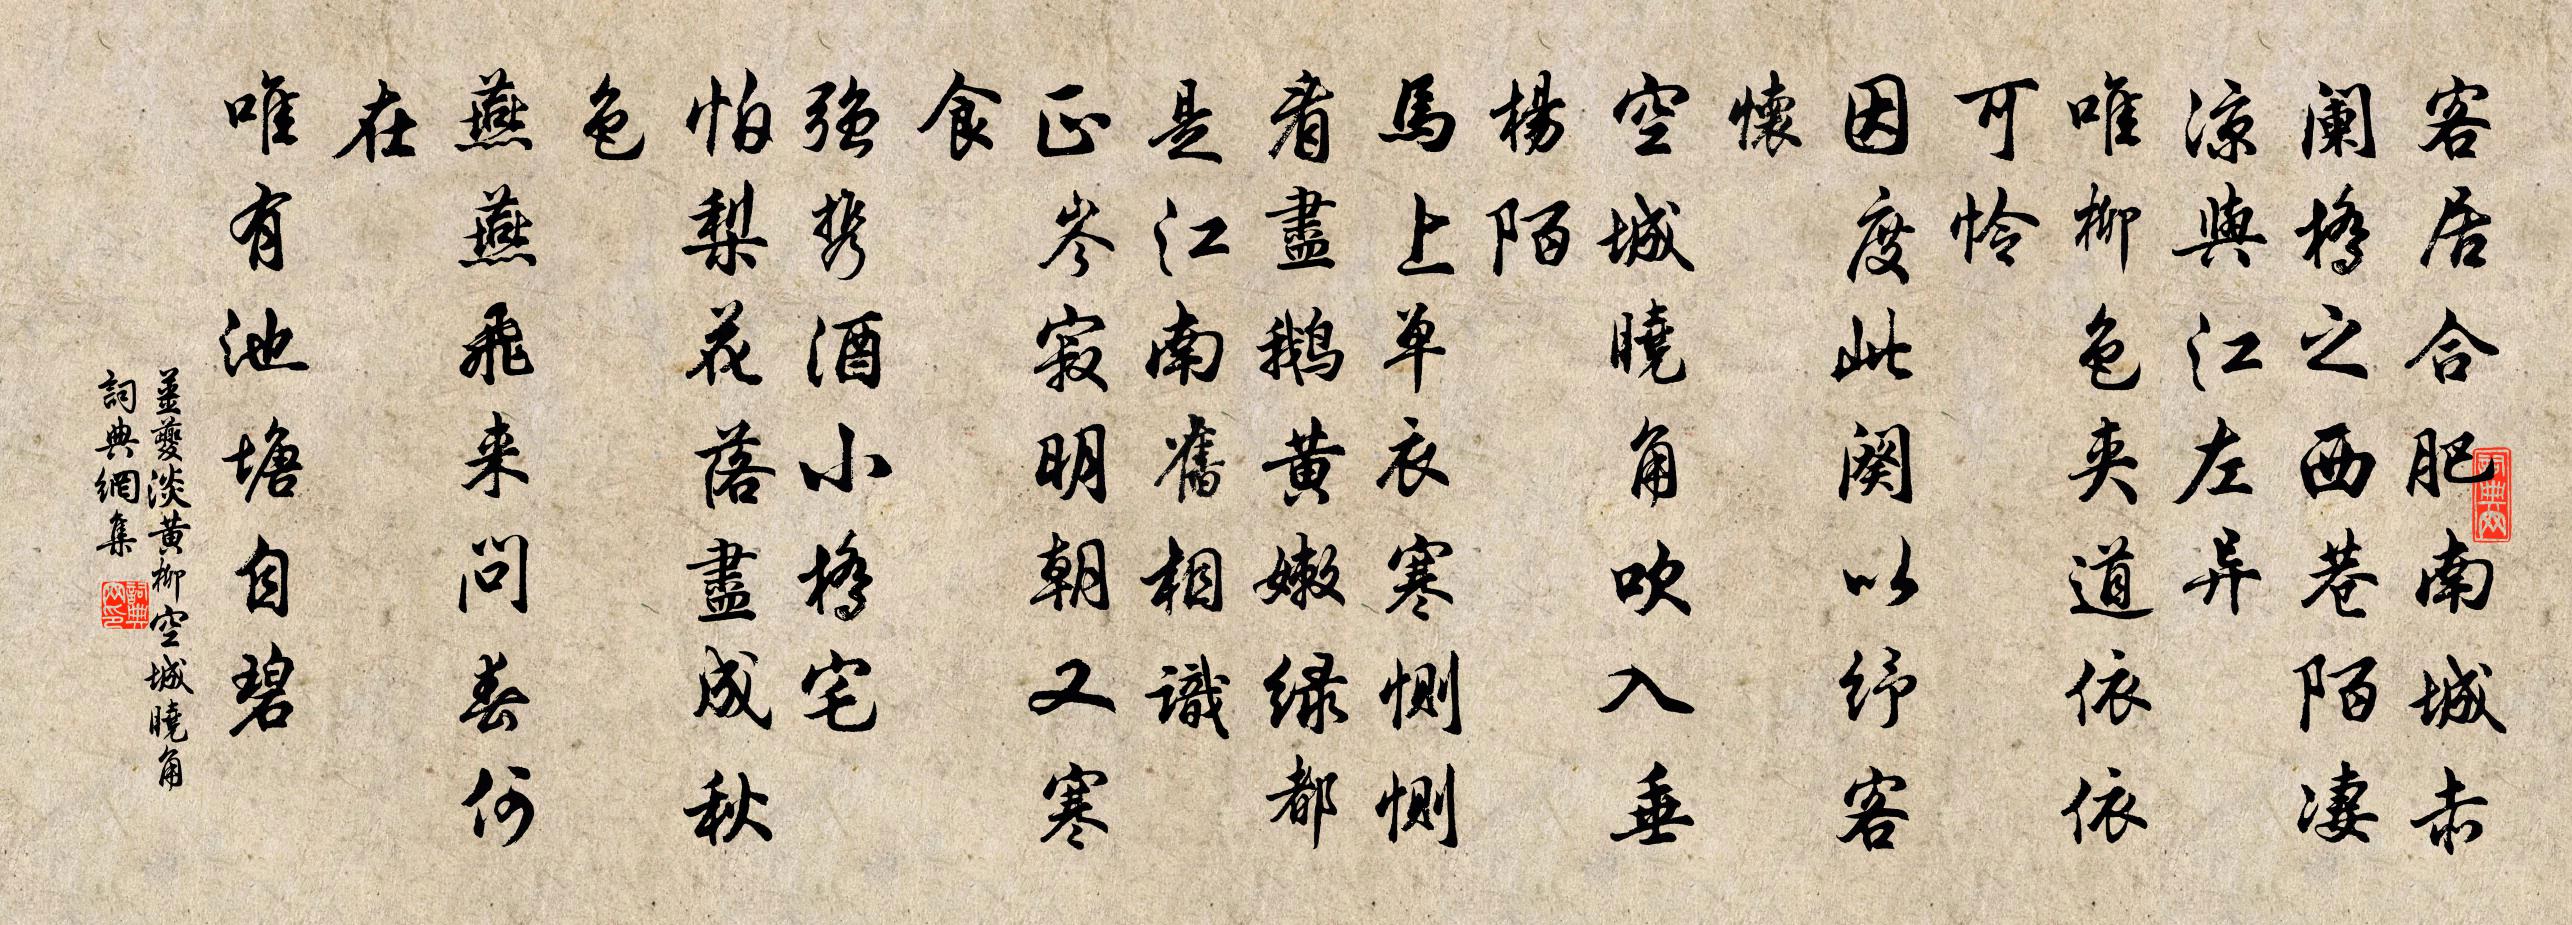 客居合肥南城赤
阑橋之西巷陌凄
涼與江左异
唯柳色夾道依依
可怜
因度此阕以纾客
懷
空城曉角吹入垂
楊陌
馬上单衣寒惻惻
看盡鹅黄嫩绿都
是江南舊相識
正岑寂明朝又寒
食
强携酒小橋宅
怕梨花落盡成秋
色
燕燕飛来問春何
在
唯有池塘自碧
姜夔淡黄柳空城曉角
詞典網集
詞典网
詞典网印